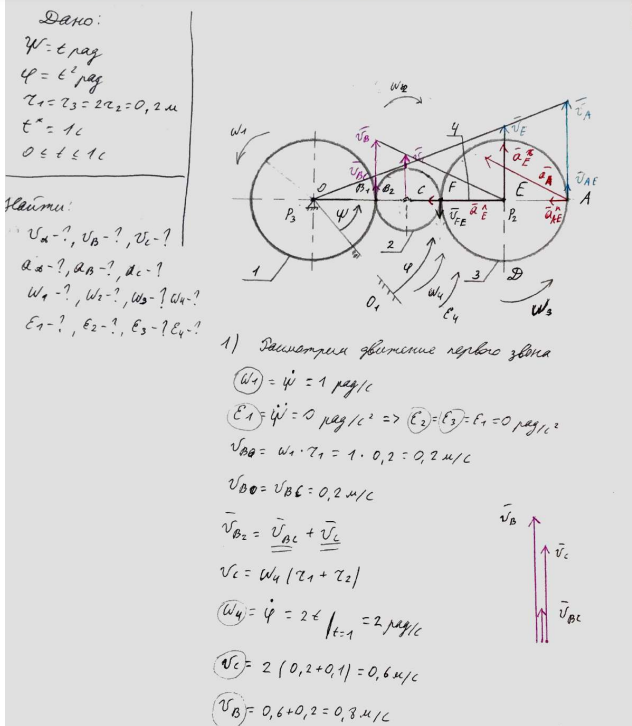 Дано:
ψ = t рад
φ = t² рад
r1 = r3 = 2r2 = 0,2 м
t* = 1c
0 ≤ t ≤ 1c
Найти:
υA-?, υB-?, υC-?
aA-?, aB-?, aC-?
ω1-?, ω2-?, ω3-? ω4-?
ε1-?, ε2-?, ε3-? ε4-?
ω1
ω2
4
υ̅B
υ̅E
υ̅A
υ̅BC
a̅A
υ̅AE
O
B1
B2
C
F
E
A
P3
ψ
υ̅FE
P2
1
2
φ
ω4
ε4
O1
3
D
ω3
1) Рассмотрим движение первого звена
ω1 = ψ̇ = 1 рад/с
ε1 = ψ̈ = 0 рад/с² => ε2 = ε3 = ε1 = 0 рад/с²
υBO = ω1 · r1 = 1 · 0,2 = 0,2 м/с
υBO = υBC = 0,2 м/с
υ̅B2 = υ̅BC + υ̅C
υC = ω4 (r1 + r2)
ω4 = φ̇ = 2t |t=1 = 2 рад/с
υC = 2 (0,2+0,1) = 0,6 м/с
υB = 0,6+0,2 = 0,8 м/с
υ̅B
υ̅C
υ̅BC